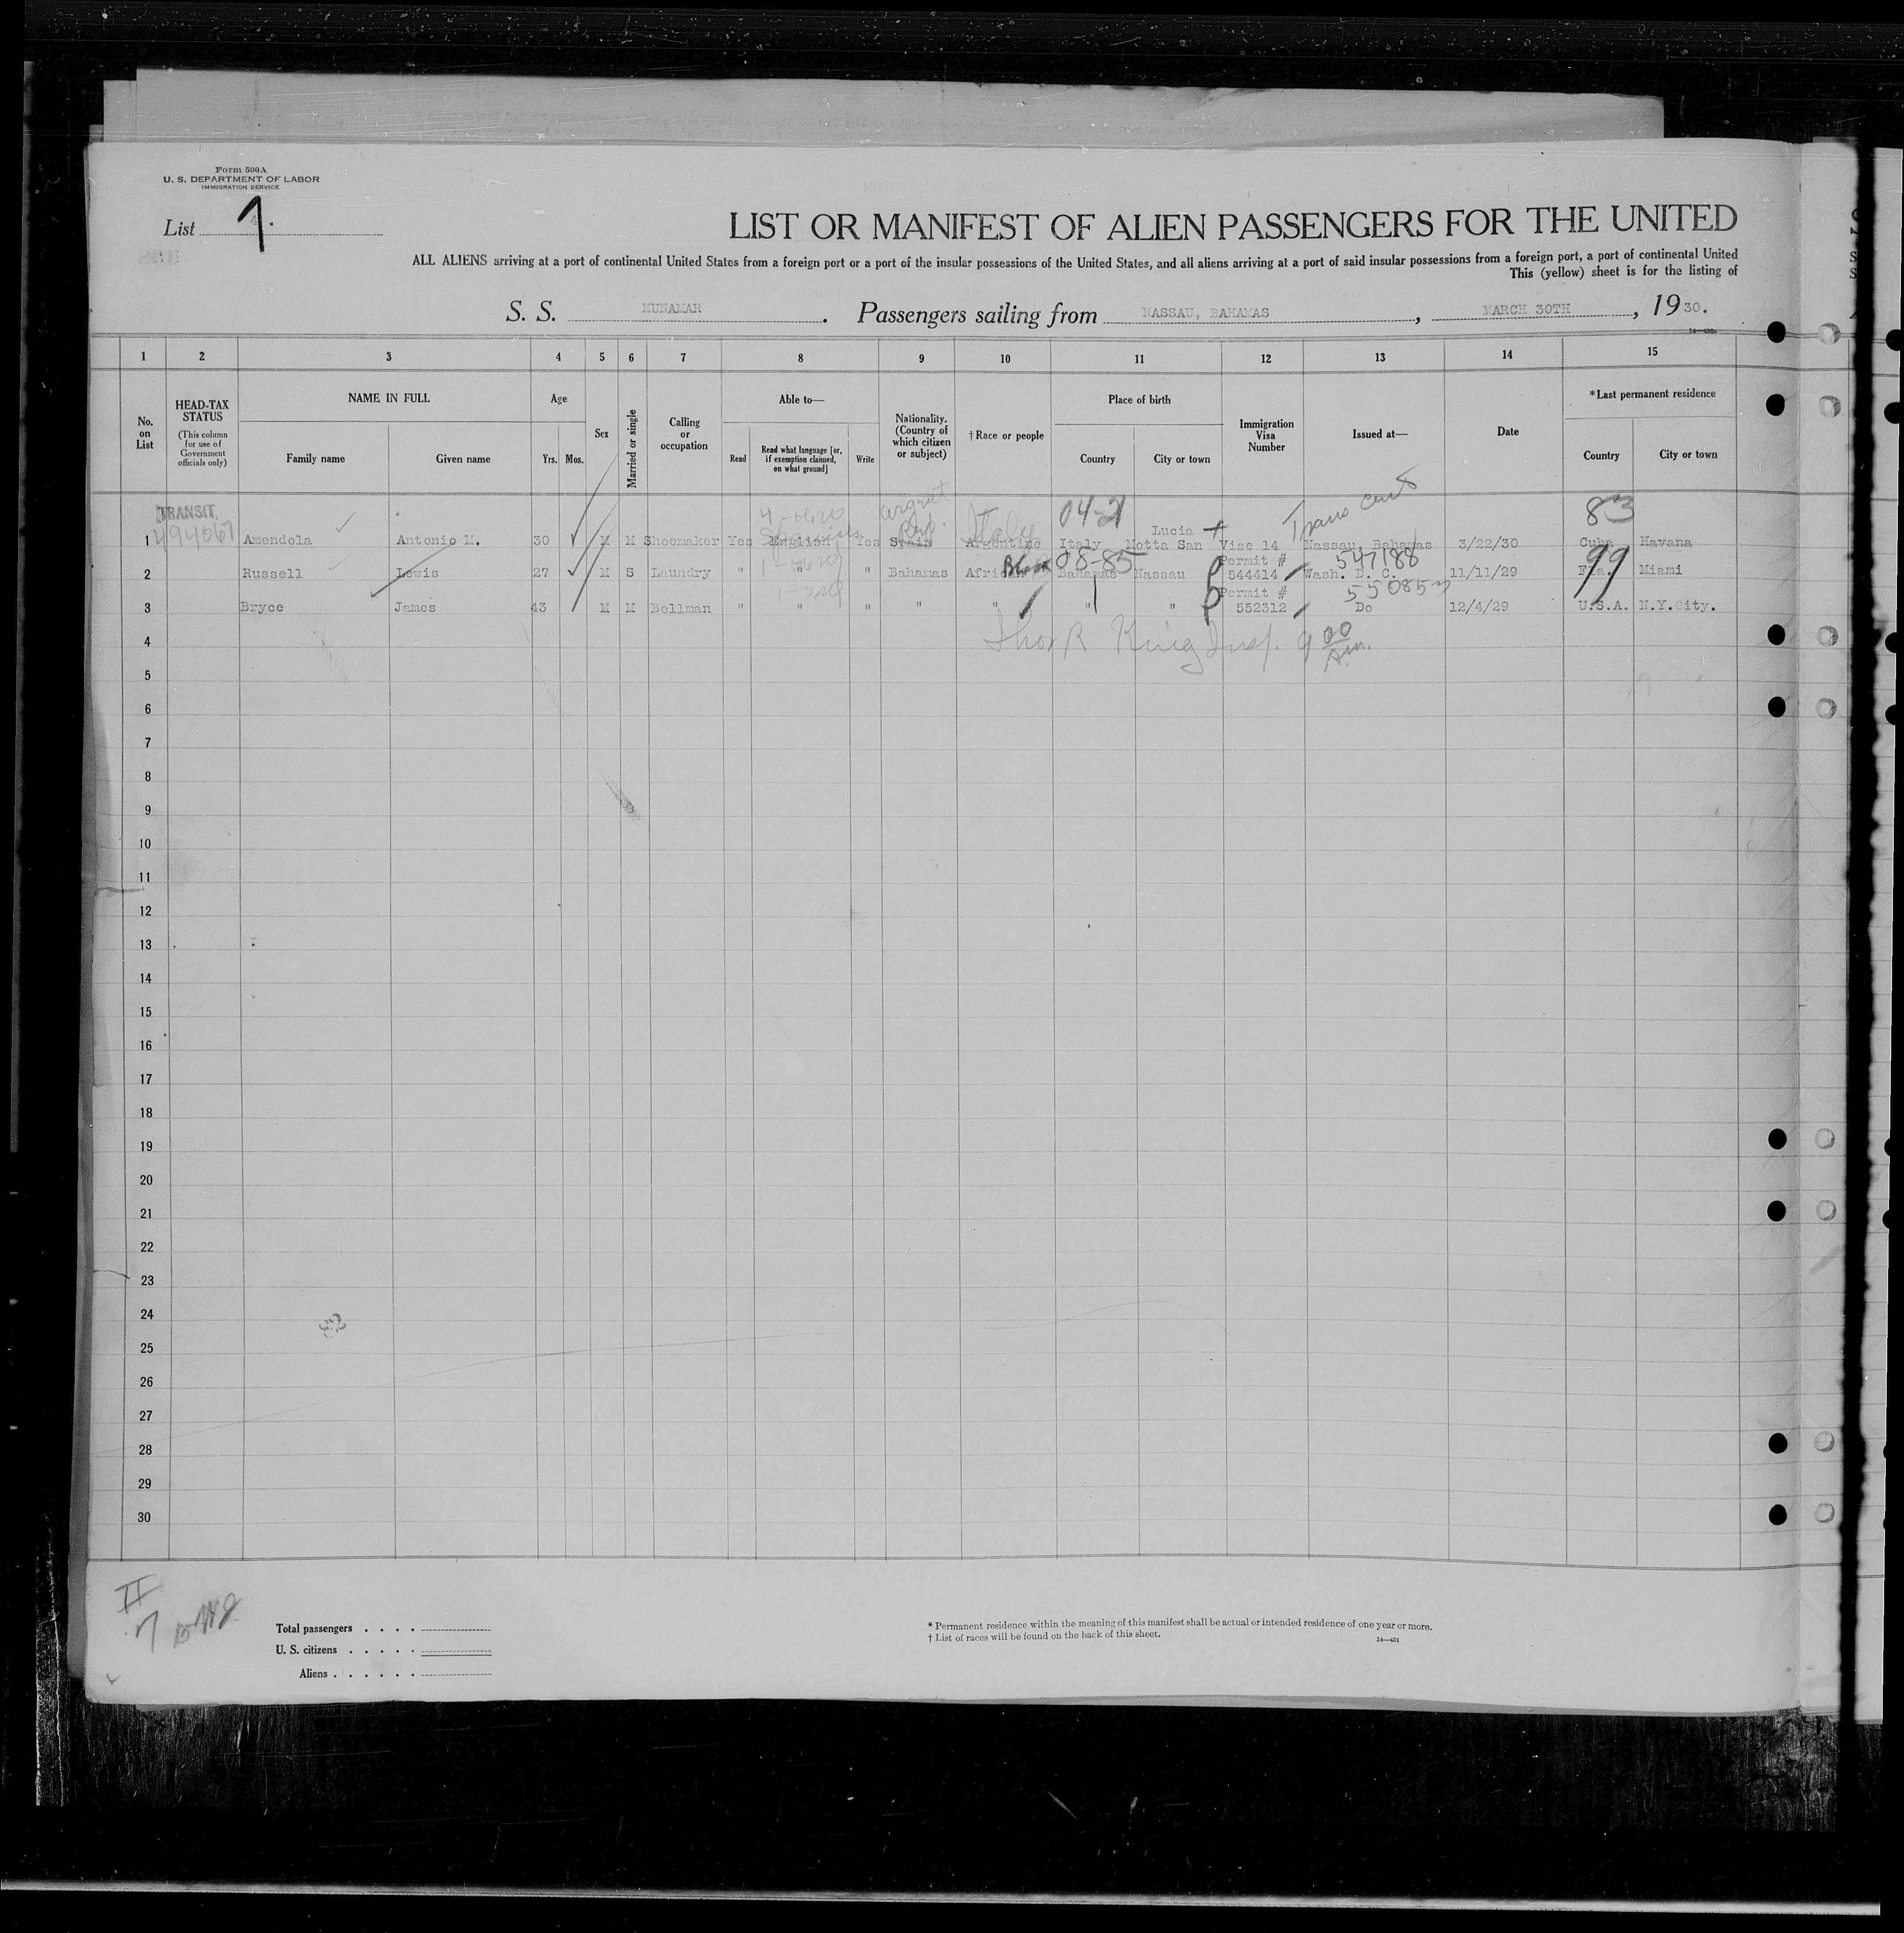 Form 500A
U. S. DEPARTMENT OF LABOR
IMMIGRATION SERVICE
List 7.
LIST OR MANIFEST OF ALIEN PASSENGERS FOR THE UNITED
ALL ALIENS arriving at a port of continental United States from a foreign port or a port of the insular possessions of the United States, and all aliens arriving at a port of said insular possessions from a foreign port, a port of continental United
This (yellow) sheet is for the listing of
S. S. MUNAMAR. Passengers sailing from NASSAU, BAHAMAS, MARCH 30TH, 1930.
1 2 3 4 5 6 7 8 9 10 11 12 13 14 15
No. on List
HEAD-TAX STATUS
(This column for use of Government officials only)
NAME IN FULL
Family name Given name
Age
Yrs. Mos.
Sex
Married or single
Calling or occupation
Able to—
Read
Read what language [or, if exemption claimed, on what ground]
Write
Nationality. (Country of which citizen or subject)
†Race or people
Place of birth
Country City or town
Immigration Visa Number
Issued at—
Date
*Last permanent residence
Country City or town
TRANSIT, 04-21 Trans cert 83
1 494067 Amendola Antonio M. 30 M M Shoemaker Yes English Yes Spain Argentine Italy Motta San Lucia Vise 14 Nassau, Bahamas 3/22/30 Cuba Havana
Italy
08-85 547188 99
2 Russell Lewis 27 M S Laundry " " " Bahamas African Black Bahamas Nassau Permit # 544414 Wash. D. C. 11/11/29 Fla. Miami
3 Bryce James 43 M M Bellman " " " " " " " Permit # 552312 Do 12/4/29 U.S.A. N.Y.City.
4 Thos R King Insp. 9 00 Am.
5
6
7
8
9
10
11
12
13
14
15
16
17
18
19
20
21
22
23
24
25
26
27
28
29
30
II
7
Total passengers
U. S. citizens
Aliens
* Permanent residence within the meaning of this manifest shall be actual or intended residence of one year or more.
† List of races will be found on the back of this sheet.
14—431